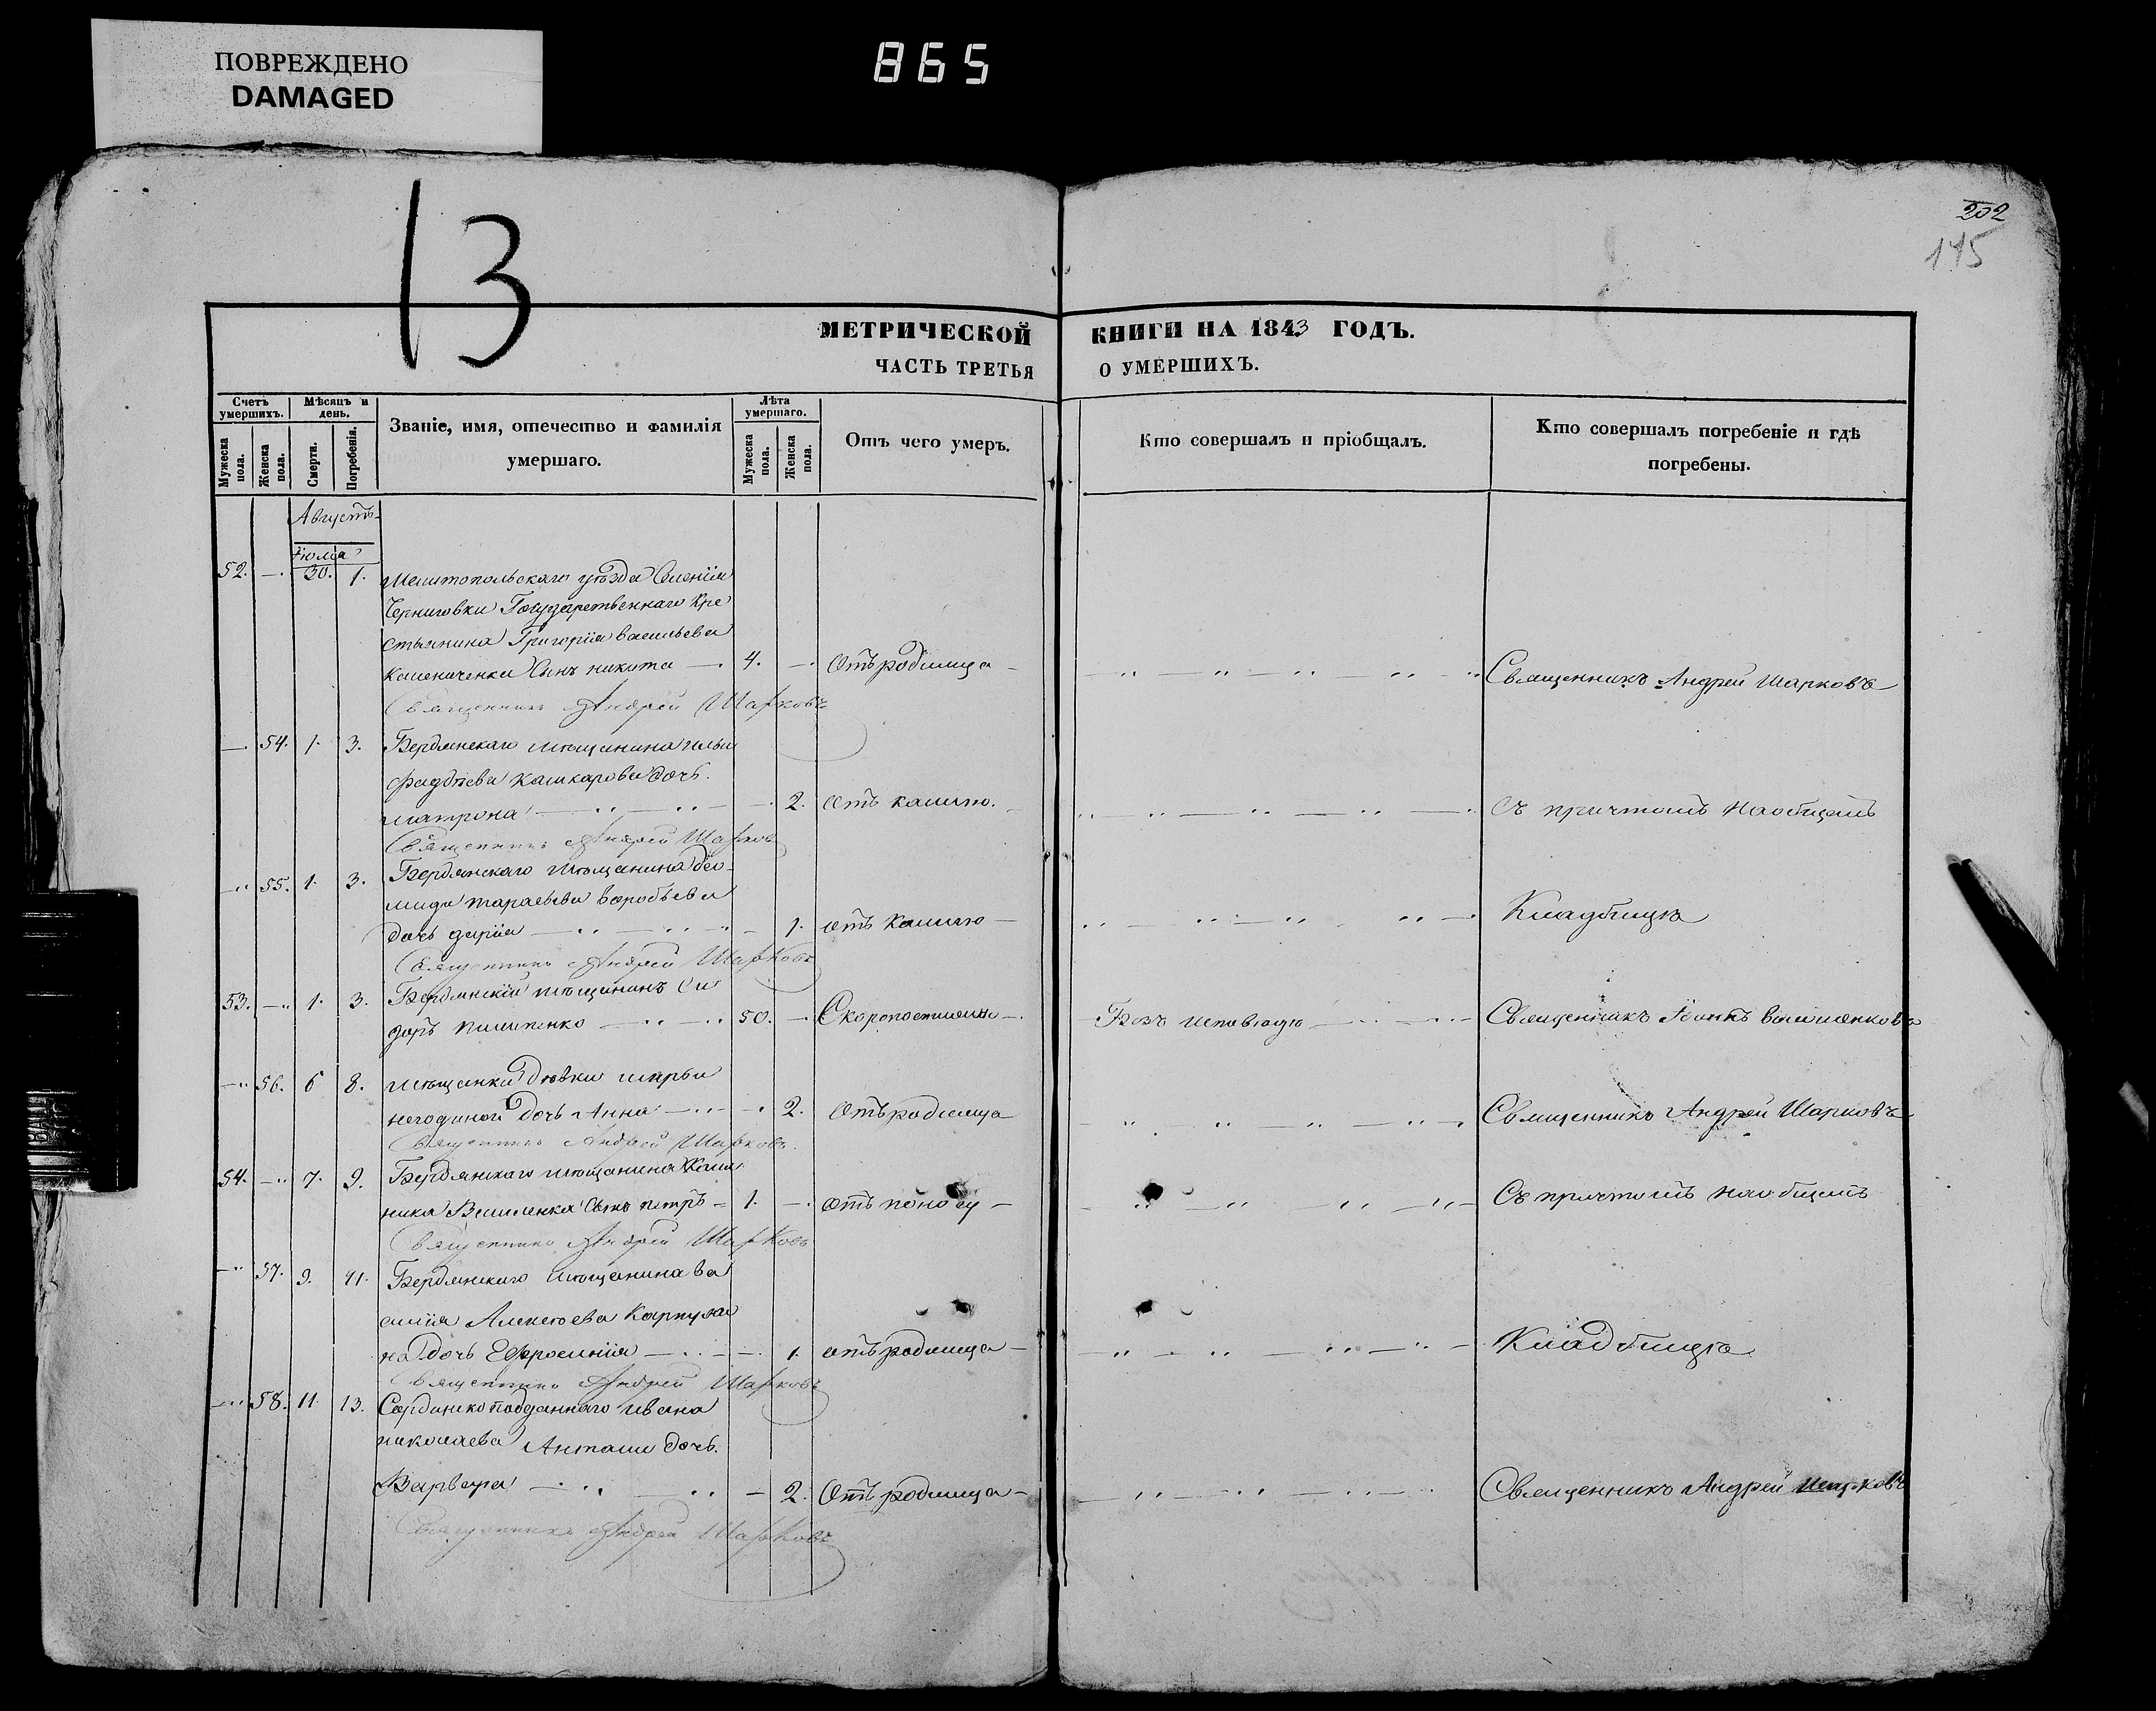 ПОВРЕЖДЕНО
DAMAGED
865
13
202
115
МЕТРИЧЕСКОЙ КНИГИ НА 1843 ГОДЪ.
ЧАСТЬ ТРЕТЬЯ О УМЕРШИХЪ.
Счетъ умершихъ.
Мужеска пола.
Женска пола.
Мѣсяцъ и день.
Смерти.
Погребенія.
Званіе, имя, отечество и фамилія умершаго.
Лѣта умершаго.
Мужеска пола.
Женска пола.
Отъ чего умеръ.
Кто совершалъ и пріобщалъ.
Кто совершалъ погребеніе и гдѣ погребены.
Августъ
Іюлія
52. — 30. 1. Мелитопольскаго уѣзда Селенія
Черниговки Государственнаго Кре
стьянина Григорія васильева
сынъ никита — 4. — Отъ родимца — Священникъ Андрей Шарковъ
Священникъ Андрей Шарковъ
— 54. 1. 3. Бердянскаго мѣщанина ильи
Фадѣева кашкарова дочь
матрона — 2. отъ кашлю. — Съ причтомъ на общемъ
Священникъ Андрей Шарковъ
— 55. 1. 3. Бердянскаго мѣщанина
воробьева
дочь дарія — 1. отъ кашлю — Кладбищѣ
Священникъ Андрей Шарковъ
53. — 1. 3. Бердянскій мѣщанинъ Си
доръ пилипенко — 50. — Скоропостижно — Безъ исповѣди — Священникъ
— 56. 6 8. мѣщанки Дѣвки марьи
негодиной дочь Анна — 2. Отъ родимца — Священникъ Андрей Шарковъ
Священникъ Андрей Шарковъ
54. — 7. 9. Бердянскаго мѣщанина Кали
ника сынъ петръ — 1. — отъ поносу — Съ причтомъ на общемъ
Священникъ Андрей Шарковъ
— 57. 9. 11. Бердянскаго мѣщанина ва
силія Алексѣева
на дочь Ефросинія — 1. отъ родимца — Кладбищѣ
Священникъ Андрей Шарковъ
— 58. 11. 13. Сардинско подданнаго ивана
николаева дочь
Варвара — 2. Отъ родимца — Священникъ Андрей Шарковъ
Священникъ Андрей Шарковъ